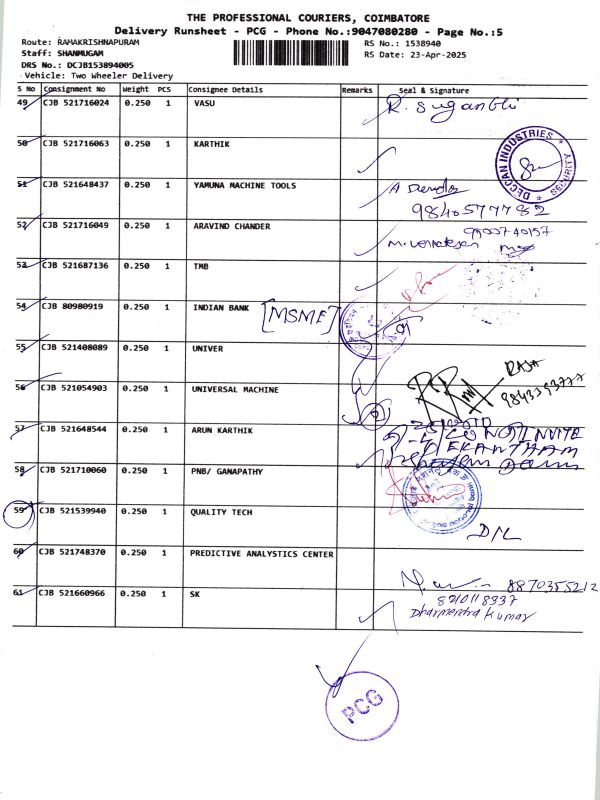 THE PROFESSIONAL COURIERS, COIMBATORE
Delivery Runsheet - PCG - Phone No.:9047080280 - Page No.:5
Route: RAMAKRISHNAPURAM
RS No.: 1538940
Staff: SHANMUGAM
RS Date: 23-Apr-2025
DRS No.: DCJB153894005
Vehicle: Two Wheeler Delivery
S No Consignment No Weight PCS Consignee Details Remarks Seal & Signature
49 CJB 521716024 0.250 1 VASU R. Suganthi
50 CJB 521716063 0.250 1 KARTHIK
DECCAN INDUSTRIES * SECURITY *
51 CJB 521648437 0.250 1 YAMUNA MACHINE TOOLS
9840577782
52 CJB 521716049 0.250 1 ARAVIND CHANDER
53 CJB 521687136 0.250 1 TMB
54 CJB 80980919 0.250 1 INDIAN BANK [MSME]
55 CJB 521408089 0.250 1 UNIVER
RAJA
56 CJB 521054903 0.250 1 UNIVERSAL MACHINE
57 CJB 521648544 0.250 1 ARUN KARTHIK
INVITE
EKANTHAM
58 CJB 521710060 0.250 1 PNB/ GANAPATHY
59 CJB 521539940 0.250 1 QUALITY TECH
D/L
60 CJB 521748370 0.250 1 PREDICTIVE ANALYSTICS CENTER
8870355212
61 CJB 521660966 0.250 1 SK
8210118337
Dharmendra Kumar
PCG